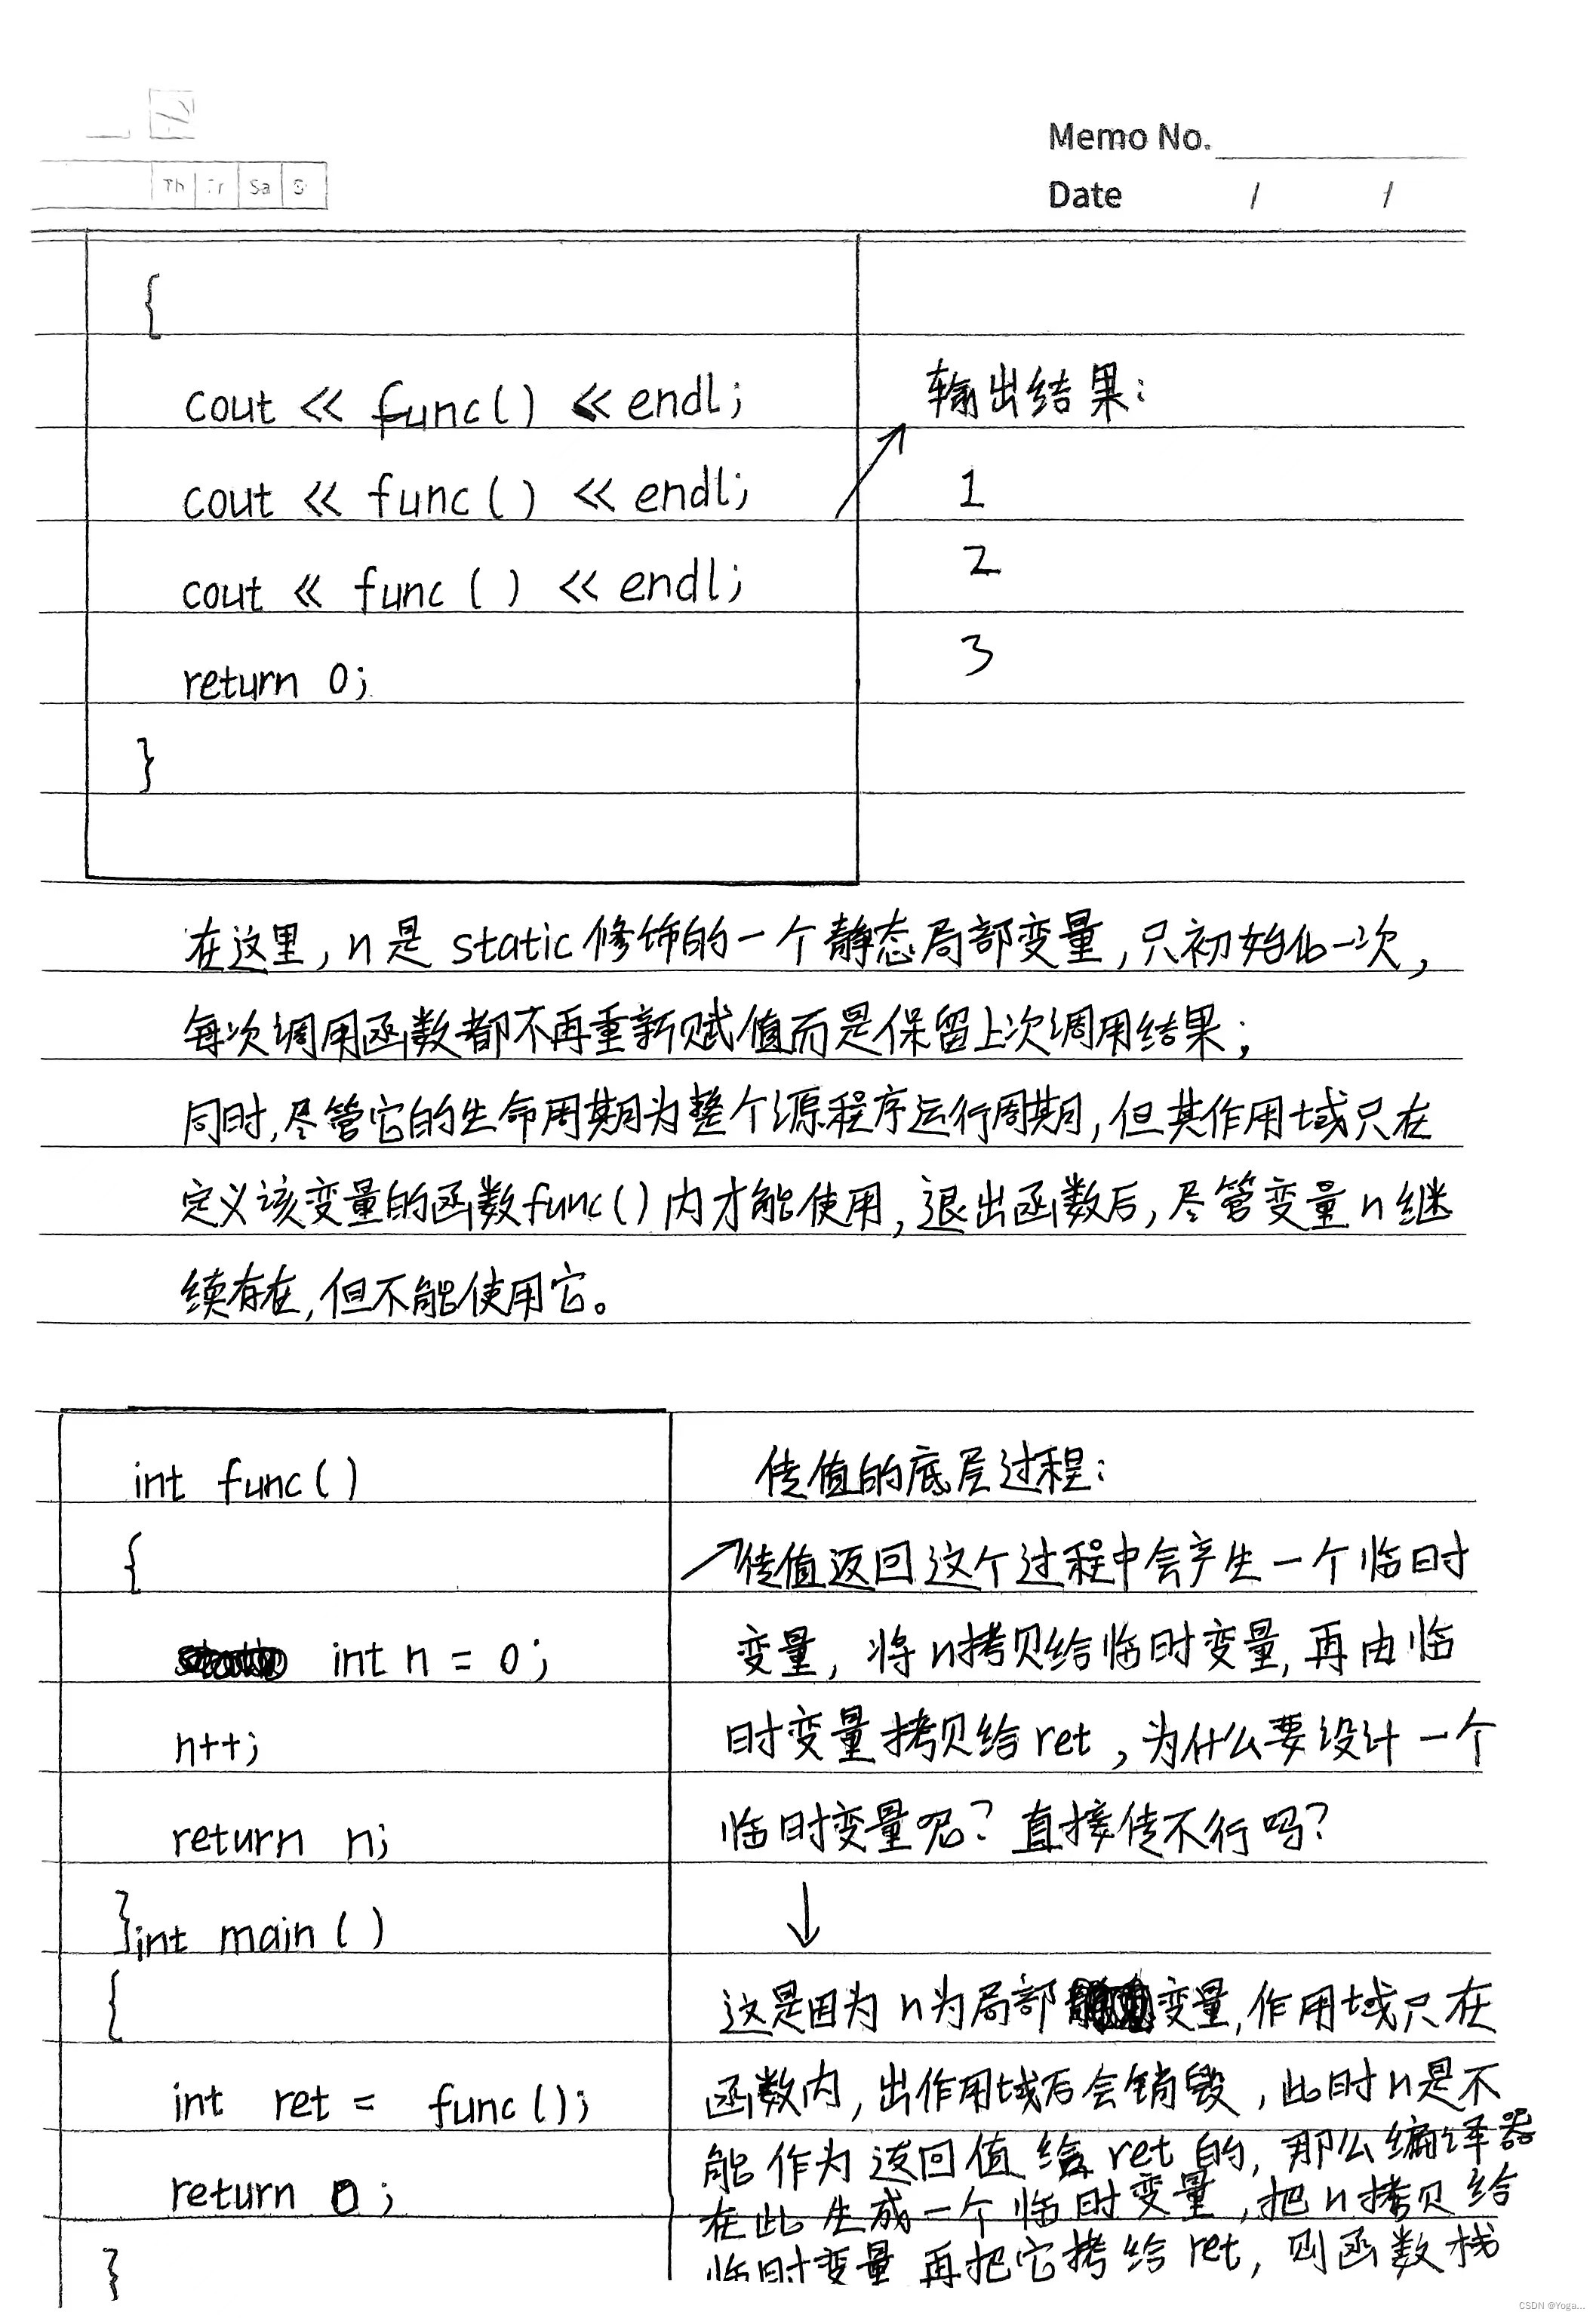 Memo No.
Th Fr Sa S
Date / /
{
cout << func() << endl;
输出结果:
cout << func() << endl;
1
cout << func() << endl;
2
return 0;
3
}
在这里, n是 static修饰的一个静态局部变量, 只初始化一次,
每次调用函数都不再重新赋值而是保留上次调用结果;
同时, 尽管它的生命周期为整个源程序运行周期, 但其作用域只在
定义该变量的函数func()内才能使用, 退出函数后, 尽管变量n继
续存在, 但不能使用它。
int func()
{
int n = 0;
n++;
return n;
}int main()
{
int ret = func();
return 0;
}
传值的底层过程:
传值返回这个过程中会产生一个临时
变量, 将n拷贝给临时变量, 再由临
时变量拷贝给ret, 为什么要设计一个
临时变量呢? 直接传不行吗?
这是因为n为局部变量, 作用域只在
函数内, 出作用域后会销毁, 此时n是不
能作为返回值给ret的, 那么编译器
在此生成一个临时变量, 把n拷贝给
临时变量 再把它拷给ret, 则函数栈
CSDN @Yoga...